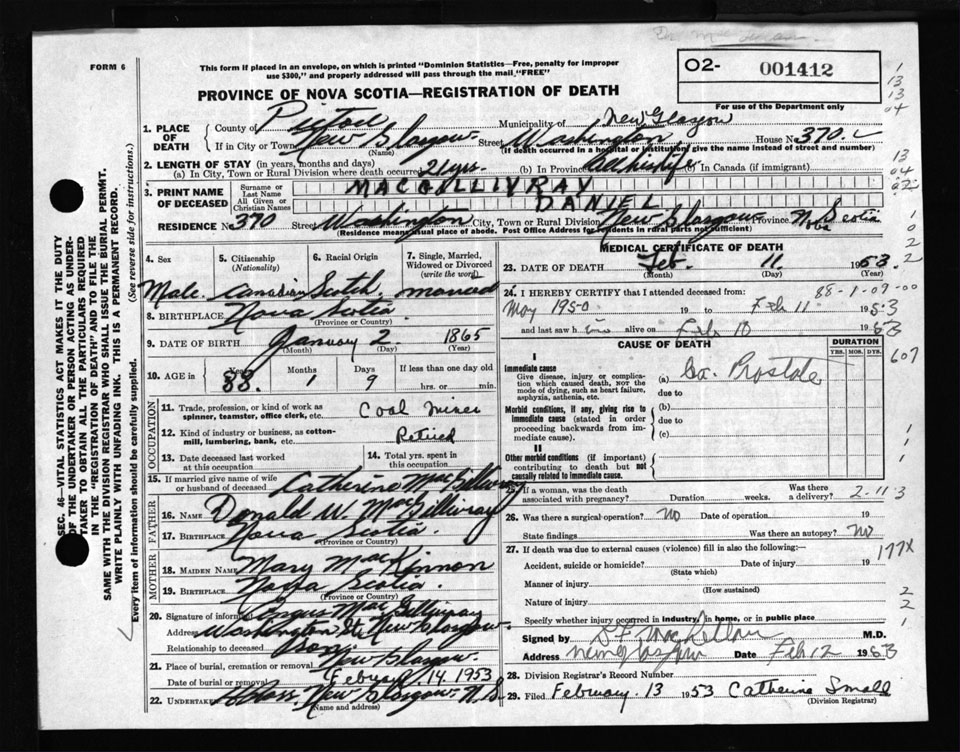 FORM 6
This form if placed in an envelope, on which is printed "Dominion Statistics—Free, penalty for improper
use $300," and properly addressed will pass through the mail "FREE"
O2- 001412
PROVINCE OF NOVA SCOTIA—REGISTRATION OF DEATH
For use of the Department only
1. PLACE OF DEATH
County of Pictou Municipality of New Glasgow
If in City or Town New Glasgow (Name) Street Washington House No 370
(If death occurred in a hospital or institution, give the name instead of street and number)
2. LENGTH OF STAY (in years, months and days)
(a) In City, Town or Rural Division where death occurred 21 yrs. (b) In Province All his life (c) In Canada (if immigrant)
3. PRINT NAME OF DECEASED
Surname or Last Name MACGILLIVRAY
All Given or Christian Names DANIEL
RESIDENCE No 370 Street Washington City, Town or Rural Division New Glasgow Province Nova Scotia
(Residence means usual place of abode. Post Office Address for residents in rural parts not sufficient)
4. Sex Male
5. Citizenship (Nationality) Canadian
6. Racial Origin Scotch
7. Single, Married, Widowed or Divorced (write the word) married
8. BIRTHPLACE Nova Scotia
(Province or Country)
9. DATE OF BIRTH January 2 1865
(Month) (Day) (Year)
10. AGE in Years 88. Months 1 Days 9 If less than one day old
hrs. or min.
OCCUPATION
11. Trade, profession, or kind of work as spinner, teamster, office clerk, etc. Coal Miner
12. Kind of industry or business, as cotton-mill, lumbering, bank, etc. Retired
13. Date deceased last worked at this occupation
14. Total yrs. spent in this occupation
15. If married give name of wife or husband of deceased Catherine MacGillivray
FATHER
16. NAME Donald W. MacGillivray
17. BIRTHPLACE Nova Scotia
(Province or Country)
MOTHER
18. MAIDEN NAME Mary MacKinnon
19. BIRTHPLACE Nova Scotia
(Province or Country)
20. Signature of informant Angus MacGillivray
Address Washington St. New Glasgow
Relationship to deceased Son
21. Place of burial, cremation or removal New Glasgow
Date of burial or removal February 14 1953
22. UNDERTAKER New Glasgow N.S.
(Name and address)
MEDICAL CERTIFICATE OF DEATH
23. DATE OF DEATH Feb. 11 1953.
(Month) (Day) (Year)
24. I HEREBY CERTIFY that I attended deceased from: 88-1-09-00
May 1950 19 to Feb 11 1953
and last saw him alive on Feb 10 1953
CAUSE OF DEATH
DURATION
YRS. MOS. DYS.
I
Immediate cause
Give disease, injury or complication which caused death, NOT the mode of dying, such as heart failure, asphyxia, asthenia, etc.
(a) Ca. Prostate
due to
Morbid conditions, if any, giving rise to immediate cause (stated in order proceeding backwards from immediate cause).
(b)
due to
(c)
II
Other morbid conditions (if important) contributing to death but not causally related to immediate cause.
25. If a woman, was the death associated with pregnancy? Duration weeks. Was there a delivery? 2-11-3
26. Was there a surgical operation? No Date of operation 19
State findings Was there an autopsy? No
27. If death was due to external causes (violence) fill in also the following:—
177X
Accident, suicide or homicide? Date of injury 19
(State which)
Manner of injury
(How sustained)
Nature of injury
Specify whether injury occurred in Industry, in home, or in public place
Signed by M.D.
Address New Glasgow Date Feb 12 1953
28. Division Registrar's Record Number
29. Filed February 13 1953 Catherine Small
(Division Registrar)
SEC. 46—VITAL STATISTICS ACT MAKES IT THE DUTY
OF THE UNDERTAKER OR PERSON ACTING AS UNDER-
TAKER TO OBTAIN ALL THE PARTICULARS REQUIRED
IN THE "REGISTRATION OF DEATH" AND TO FILE THE
SAME WITH THE DIVISION REGISTRAR WHO SHALL ISSUE THE BURIAL PERMIT.
WRITE PLAINLY WITH UNFADING INK. THIS IS A PERMANENT RECORD.
Every item of information should be carefully supplied. (See reverse side for instructions.)